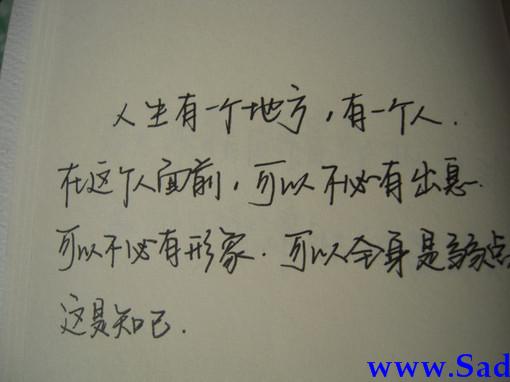 人生有一个地方,有一个人.
在这个人面前,可以不必有出息.
可以不必有形象.可以全身是弱点
这是知己.
www.Sad